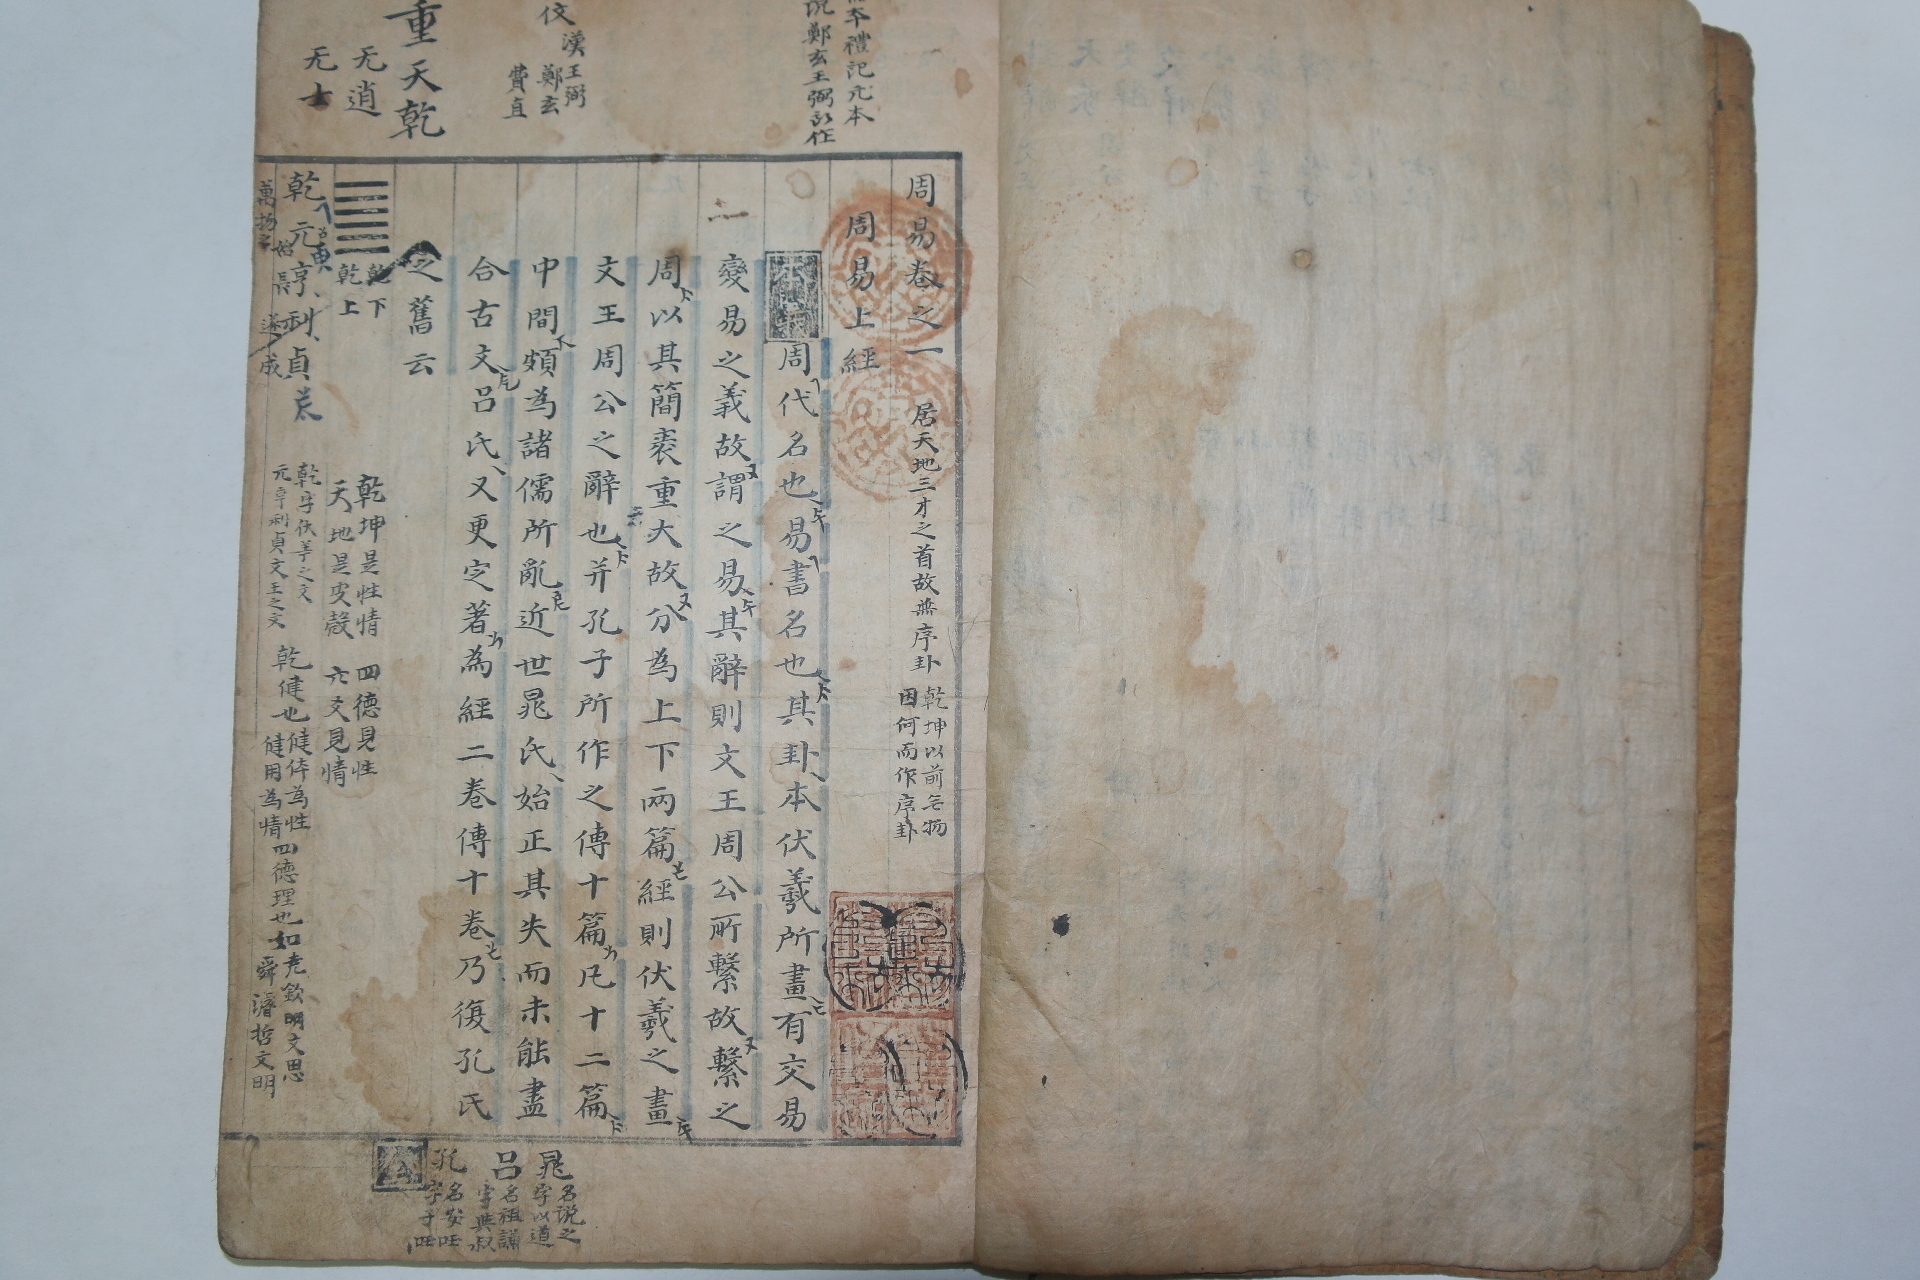 周易卷之一
居天地三才之首故無序卦
乾坤以前無物
因何而作序卦
周易上經
本義
周代名也易書名也其卦本伏羲所畫有交易
變易之義故謂之易其辭則文王周公所繫故繫之
周以其簡袠重大故分為上下兩篇經則伏羲之畫
文王周公之辭也并孔子所作之傳十篇凡十二篇
中間頗為諸儒所亂近世晁氏始正其失而未能盡
合古文呂氏又更定著為經二卷傳十卷乃復孔氏
之舊云
乾下
乾上
乾元亨利貞
乾坤是性情
天地是皮殼
四德見性
六爻見情
乾字伏羲之文
元亨利貞文王之文
乾健也健体為性
健用為情四德理也如堯欽明文思
舜濬哲文明
重天乾
无逍
无士
漢王弼
鄭玄
費直
本禮記
說鄭玄王弼所作
晁
名說之
字以道
呂
名祖謙
字典叔
孔
名安
字子